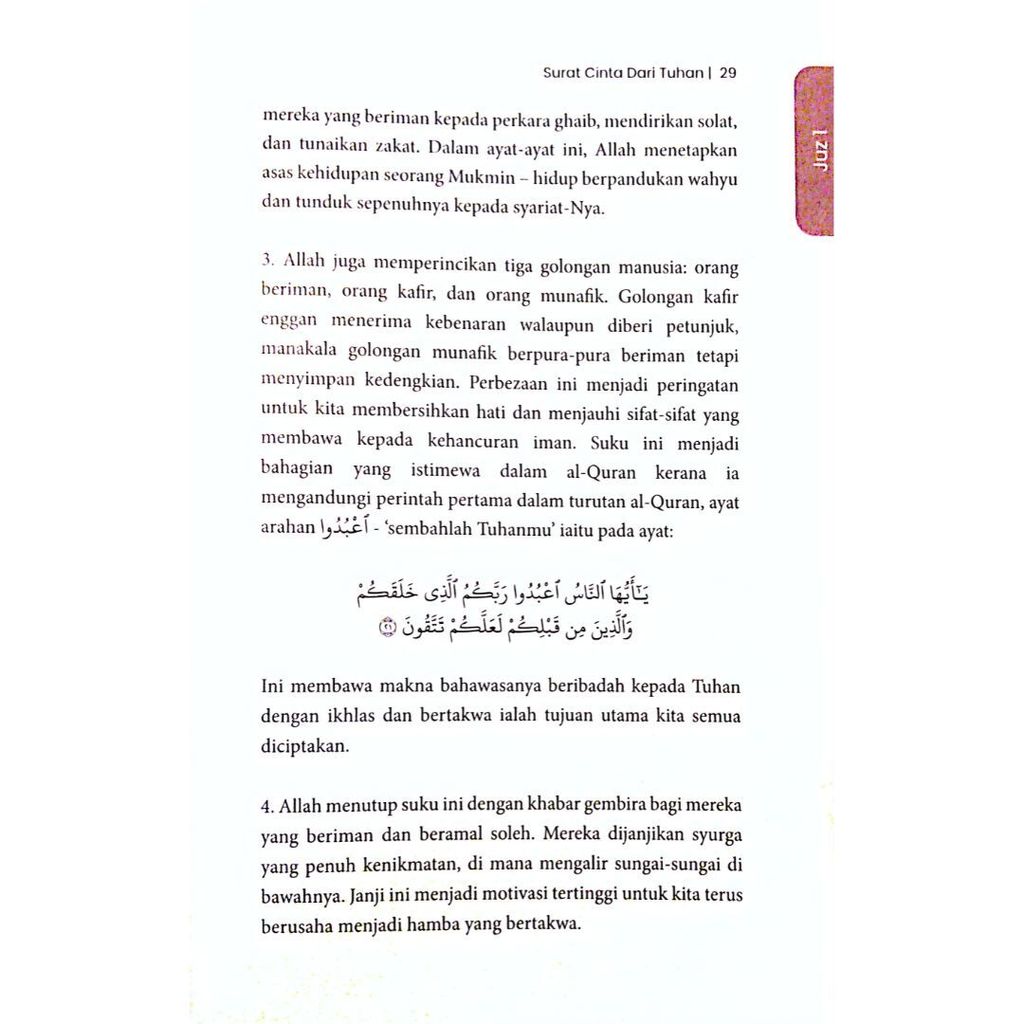 Surat Cinta Dari Tuhan | 29
Juz 1
mereka yang beriman kepada perkara ghaib, mendirikan solat,
dan tunaikan zakat. Dalam ayat-ayat ini, Allah menetapkan
asas kehidupan seorang Mukmin – hidup berpandukan wahyu
dan tunduk sepenuhnya kepada syariat-Nya.
3. Allah juga memperincikan tiga golongan manusia: orang
beriman, orang kafir, dan orang munafik. Golongan kafir
enggan menerima kebenaran walaupun diberi petunjuk,
manakala golongan munafik berpura-pura beriman tetapi
menyimpan kedengkian. Perbezaan ini menjadi peringatan
untuk kita membersihkan hati dan menjauhi sifat-sifat yang
membawa kepada kehancuran iman. Suku ini menjadi
bahagian yang istimewa dalam al-Quran kerana ia
mengandungi perintah pertama dalam turutan al-Quran, ayat
arahan ٱعْبُدُوا - ‘sembahlah Tuhanmu’ iaitu pada ayat:
يَـٰٓأَيُّهَا ٱلنَّاسُ ٱعْبُدُوا رَبَّكُمُ ٱلَّذِى خَلَقَكُمْ
وَٱلَّذِينَ مِن قَبْلِكُمْ لَعَلَّكُمْ تَتَّقُونَ ٢١
Ini membawa makna bahawasanya beribadah kepada Tuhan
dengan ikhlas dan bertakwa ialah tujuan utama kita semua
diciptakan.
4. Allah menutup suku ini dengan khabar gembira bagi mereka
yang beriman dan beramal soleh. Mereka dijanjikan syurga
yang penuh kenikmatan, di mana mengalir sungai-sungai di
bawahnya. Janji ini menjadi motivasi tertinggi untuk kita terus
berusaha menjadi hamba yang bertakwa.